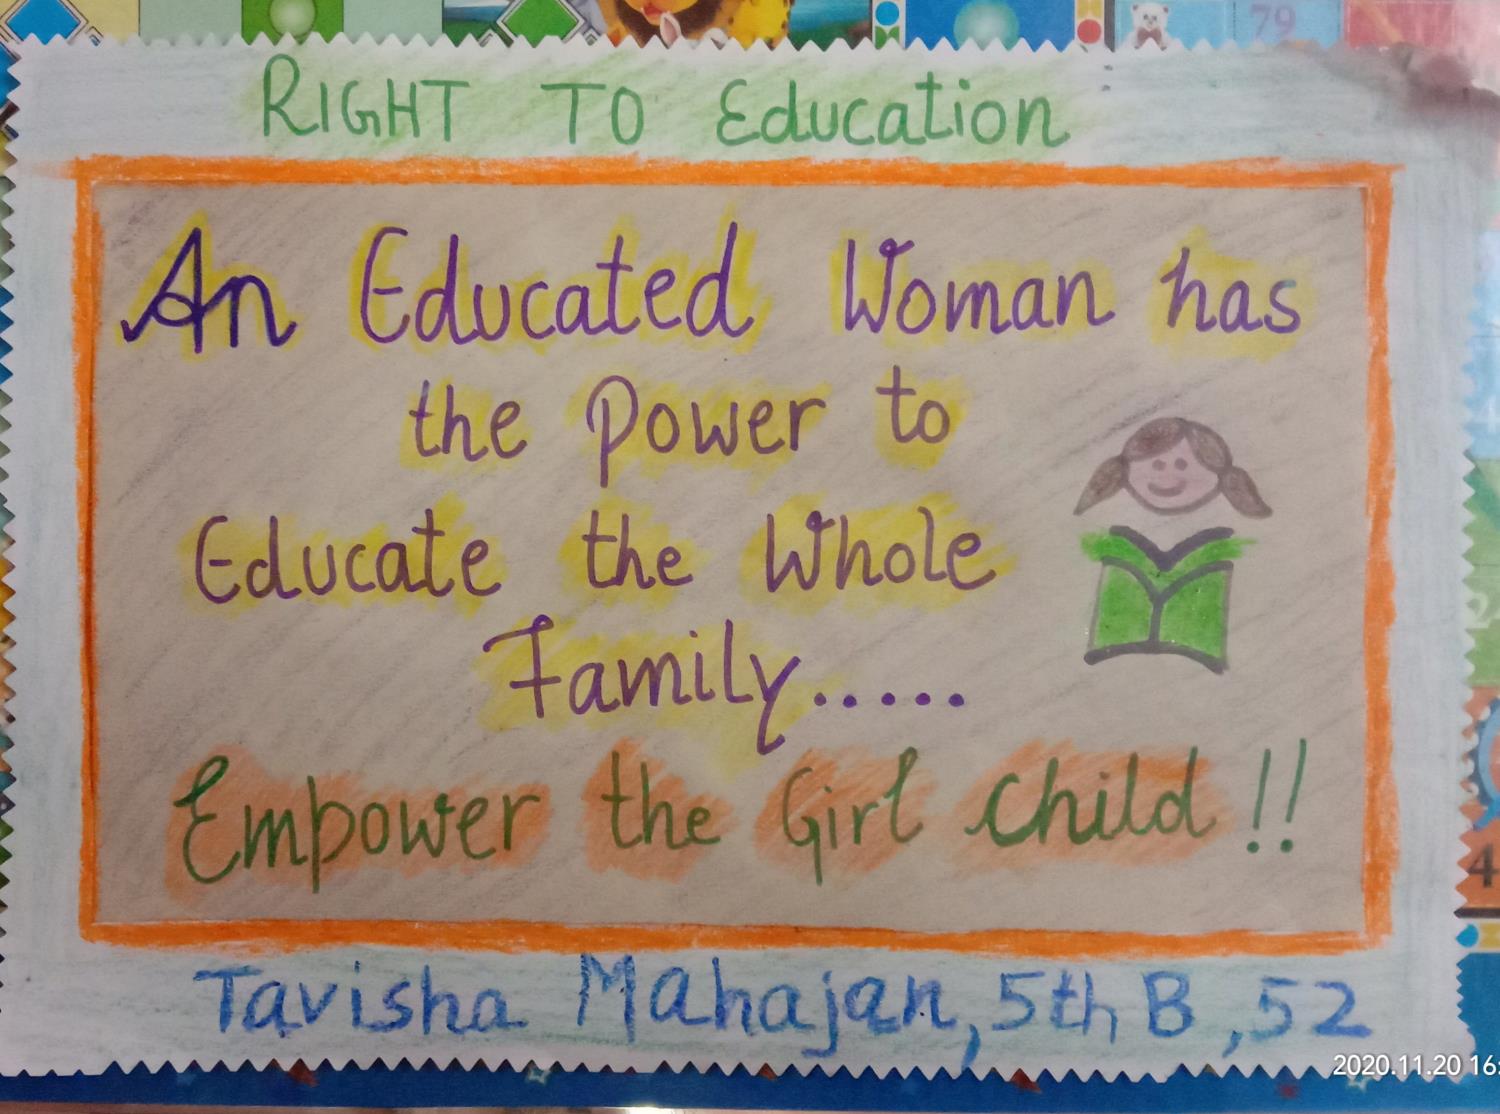 79
RIGHT TO Education
An Educated Woman has
the Power to
Educate the Whole
Family.....
Empower the Girl Child !!
Tavisha Mahajan, 5th B, 52
2020.11.20 16: